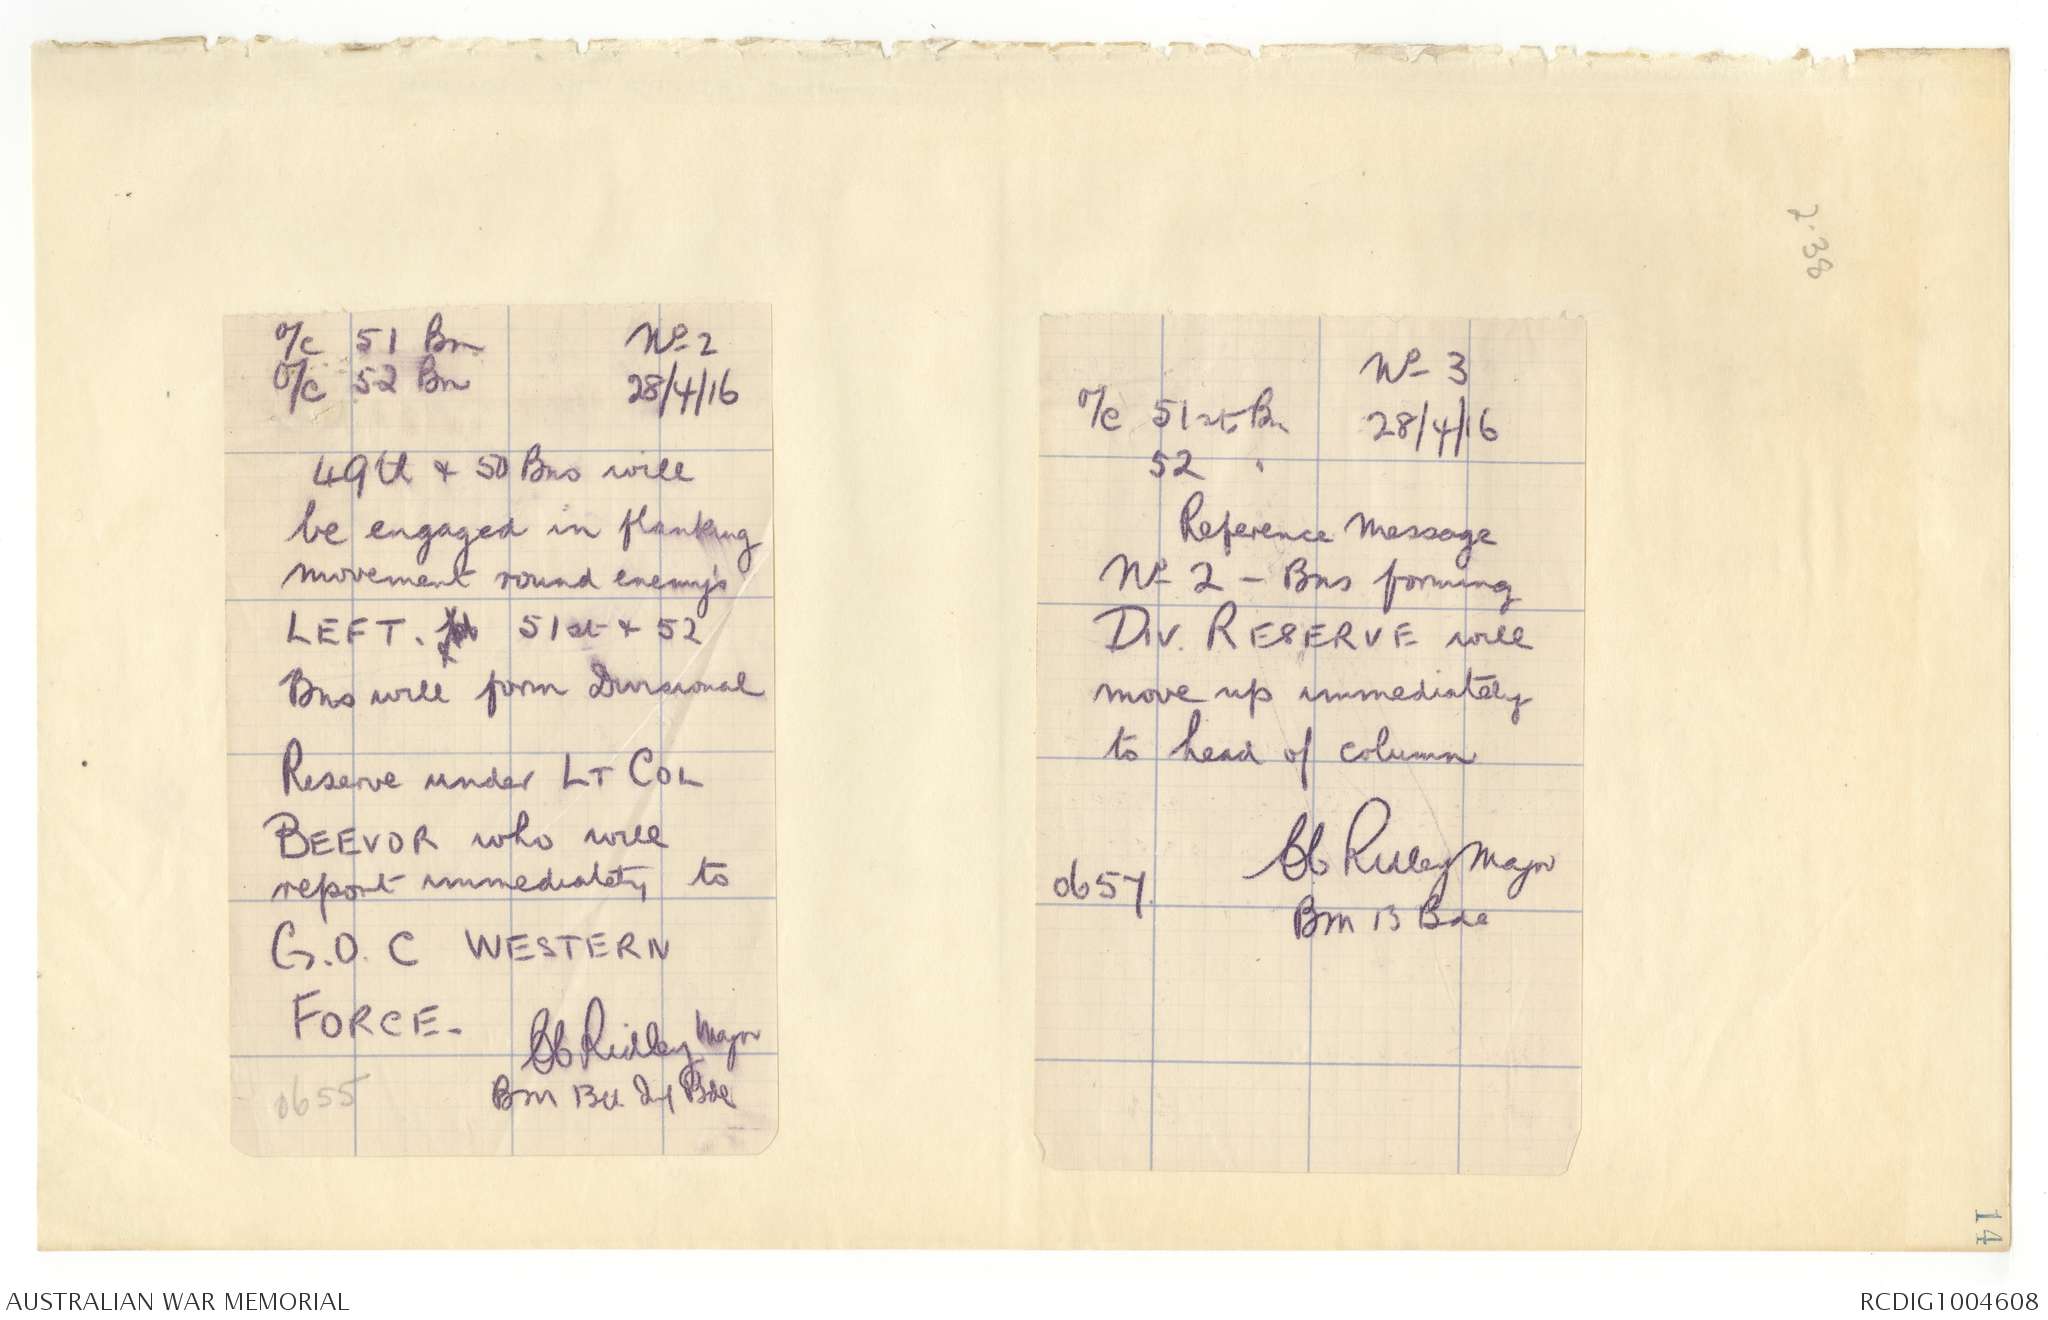 O/C 51 Bn No 2
O/C 52 Bn 28/4/16
49th & 50 Bns will
be engaged in flanking
movement round enemy's
LEFT. 51st & 52
Bns will form Divisional
Reserve under LT COL
BEEVOR who will
report immediately to
G.O.C WESTERN
FORCE.
Ridley Major
0655 BM 13th Inf Bde
2.38
No 3
O/C 51st Bn 28/4/16
52 "
Reference Message
No 2 - Bns forming
DIV. RESERVE will
move up immediately
to head of column
Ridley Major
0657.
BM 13 Bde
14
AUSTRALIAN WAR MEMORIAL
RCDIG1004608